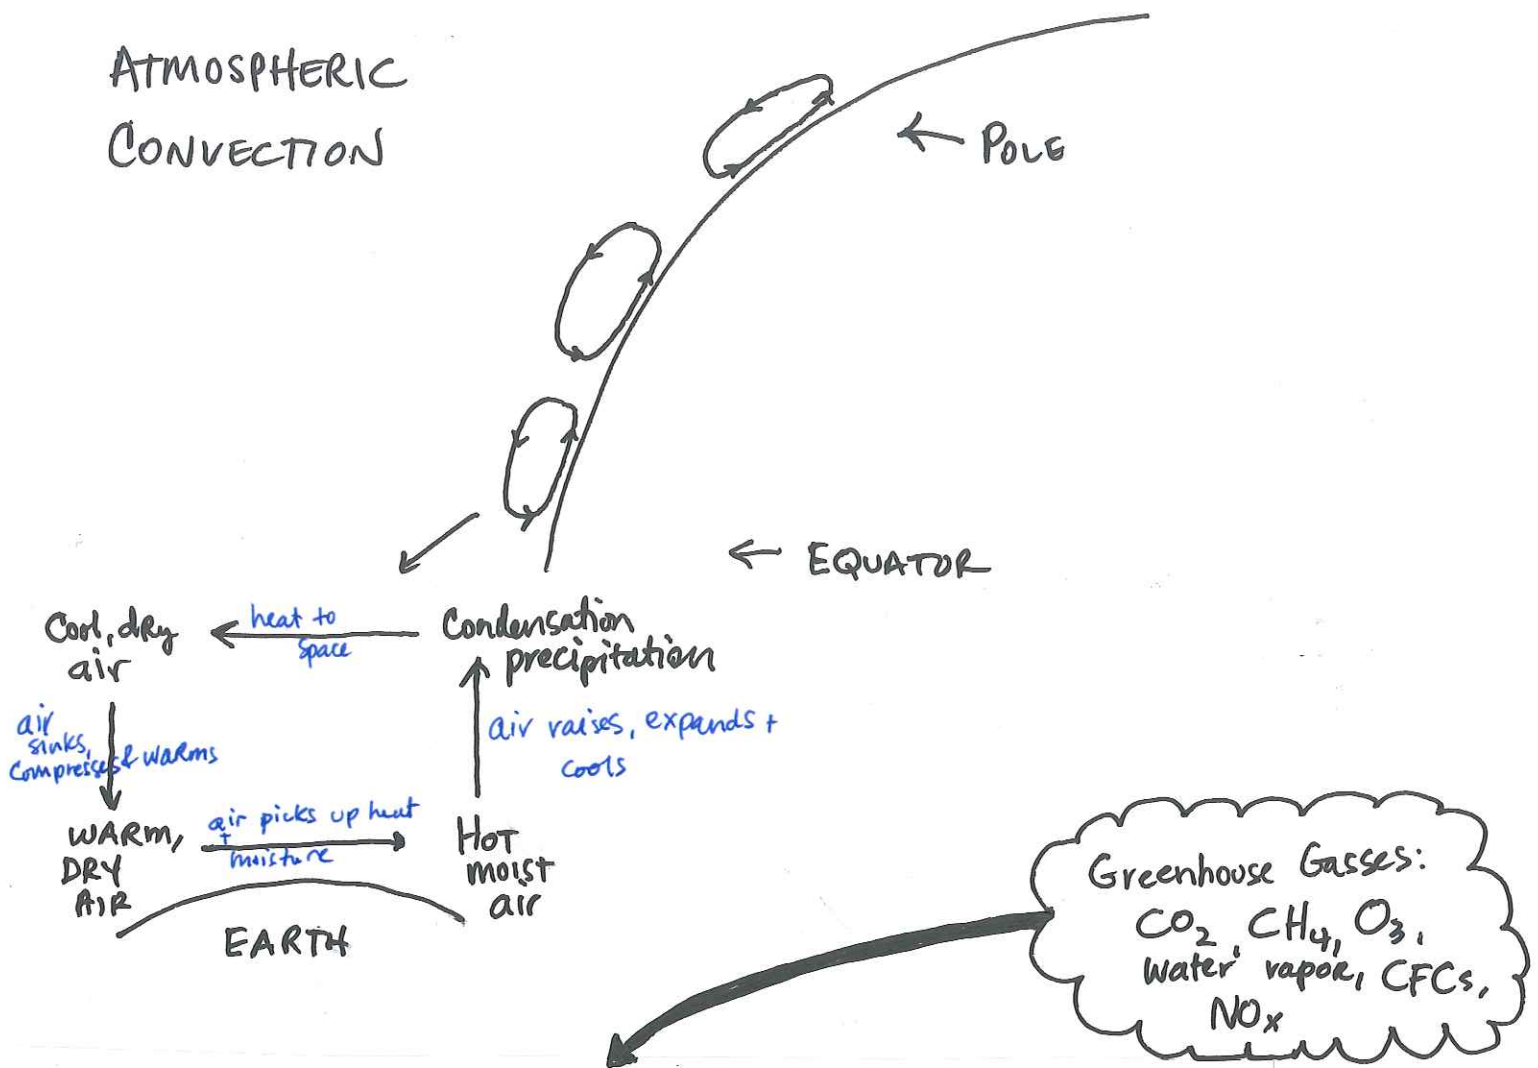 ATMOSPHERIC
CONVECTION
← POLE
← EQUATOR
Cool, dry
air
heat to
space
Condensation
precipitation
air
sinks,
compresses & warms
air raises, expands +
cools
WARM,
DRY
AIR
air picks up heat
+
moisture
HOT
moist
air
EARTH
Greenhouse Gasses:
CO2, CH4, O3,
water vapor, CFCs,
NOx